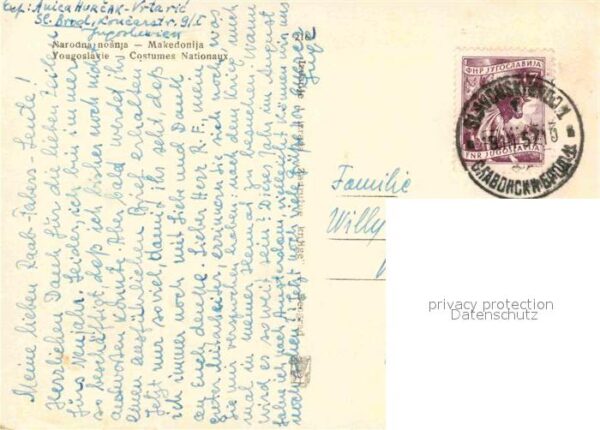 Exp: Anica HURČAK-Vrtarić
Sl. Brod, Končareva 9/I
Jugoslawien
Narodna nošnja — Makedonija
Yougoslavie Costumes Nationaux
Meine lieben Raab-Fabers-Leute!
Herzlichen Dank für die lieben Zeilen
fürs Neujahr. Leider, ich bin immer
so beschäftigt, daß ich bisher noch nicht
antworten könnte. Aber bald werdet ihr
einen ausführlichen Brief erhalten.
Jetzt nur soviel, damit ihr seht, daß
ich immer noch mit Liebe und Dank
an Euch denke. Lieber Herr R. F., mein
guter, erinnern Sie sich noch, was
Sie mir versprochen haben: nach dem Krieg noch
mal in meiner Heimat zu besuchen! Wann
wird es so weit sein? Dieses Jahr im August
fahre ich nach Amsterdam, vielleicht können wir uns
noch
Eure
Familie
Willy
ФНР ЈУГОСЛАВИЈА
FNR JUGOSLAVIJA
SLAVONSKI BROD 1
СЛАВОНСКИ БРОД
privacy protection
Datenschutz